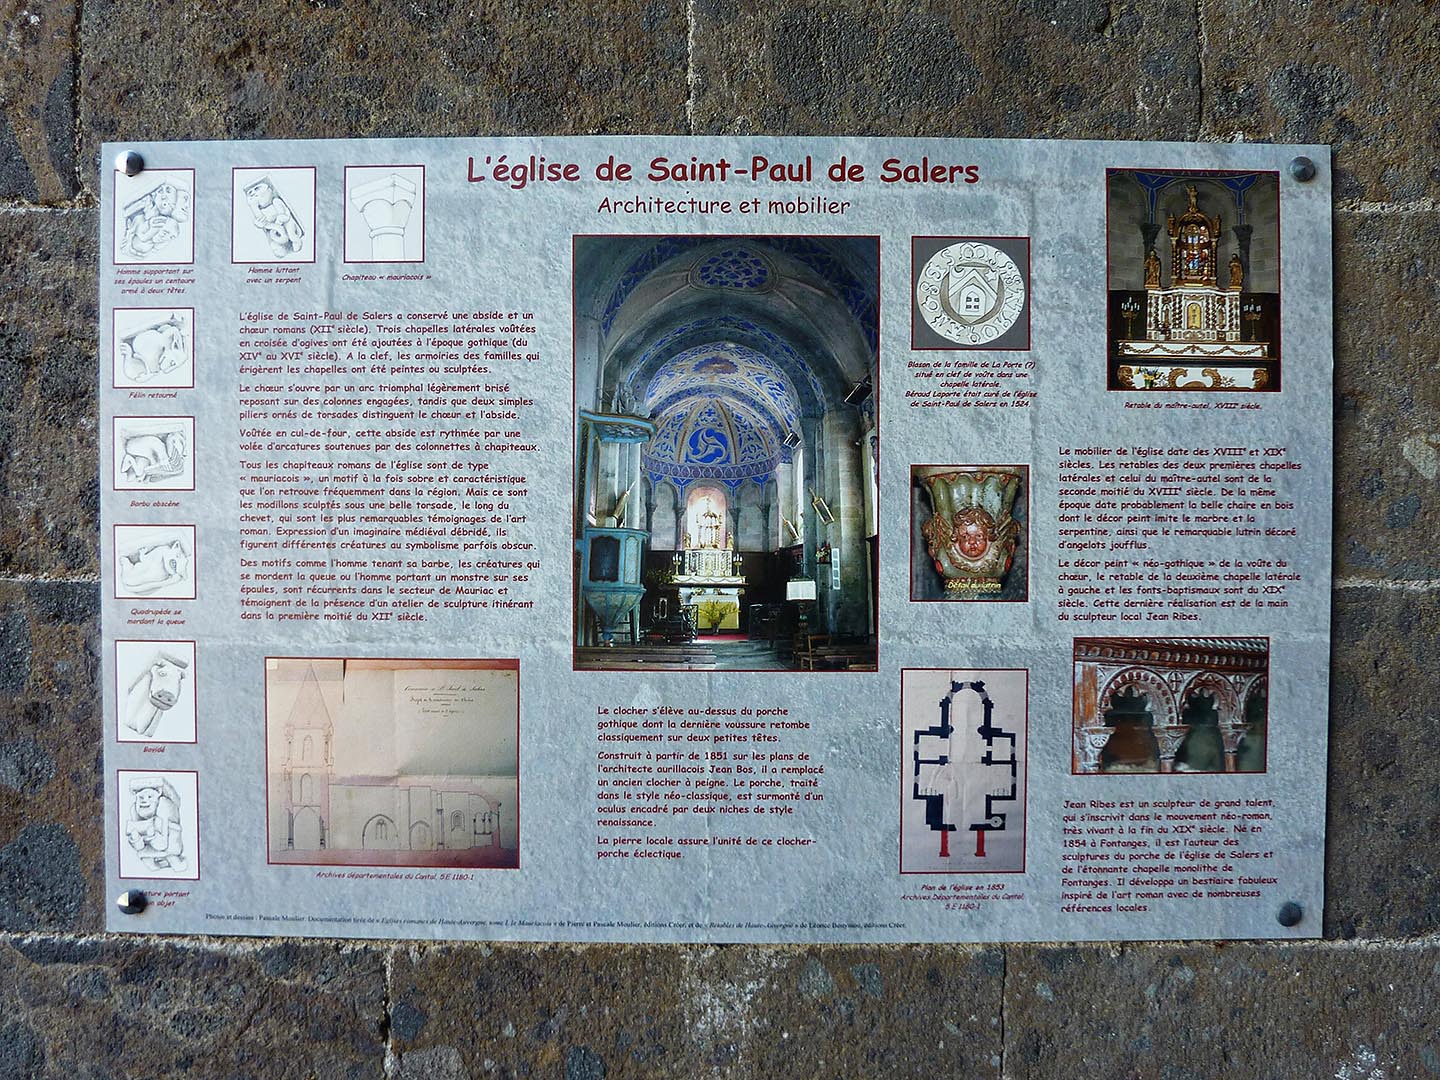 L'église de Saint-Paul de Salers
Architecture et mobilier
Homme supportant sur
ses épaules un centaure
armé à deux têtes.
Homme luttant
avec un serpent
Chapiteau « mauriacois »
Félin retourné
Barbu obscène
Quadrupède se
mordant la queue
Bovidé
portant
un objet
L'église de Saint-Paul de Salers a conservé une abside et un
chœur romans (XIIe siècle). Trois chapelles latérales voûtées
en croisée d'ogives ont été ajoutées à l'époque gothique (du
XIVe au XVIe siècle). A la clef, les armoiries des familles qui
érigèrent les chapelles ont été peintes ou sculptées.
Le chœur s'ouvre par un arc triomphal légèrement brisé
reposant sur des colonnes engagées, tandis que deux simples
piliers ornés de torsades distinguent le chœur et l'abside.
Voûtée en cul-de-four, cette abside est rythmée par une
volée d'arcatures soutenues par des colonnettes à chapiteaux.
Tous les chapiteaux romans de l'église sont de type
« mauriacois », un motif à la fois sobre et caractéristique
que l'on retrouve fréquemment dans la région. Mais ce sont
les modillons sculptés sous une belle torsade, le long du
chevet, qui sont les plus remarquables témoignages de l'art
roman. Expression d'un imaginaire médiéval débridé, ils
figurent différentes créatures au symbolisme parfois obscur.
Des motifs comme l'homme tenant sa barbe, les créatures qui
se mordent la queue ou l'homme portant un monstre sur ses
épaules, sont récurrents dans le secteur de Mauriac et
témoignent de la présence d'un atelier de sculpture itinérant
dans la première moitié du XIIe siècle.
Archives départementales du Cantal, 5 E 1180-1
Le clocher s'élève au-dessus du porche
gothique dont la dernière voussure retombe
classiquement sur deux petites têtes.
Construit à partir de 1851 sur les plans de
l'architecte aurillacois Jean Bos, il a remplacé
un ancien clocher à peigne. Le porche, traité
dans le style néo-classique, est surmonté d'un
oculus encadré par deux niches de style
renaissance.
La pierre locale assure l'unité de ce clocher-
porche éclectique.
Blason de la famille de La Porte (?)
situé en clef de voûte dans une
chapelle latérale.
Béraud Laporte était curé de l'église
de Saint-Paul de Salers en 1524.
Détail du lutrin
Plan de l'église en 1853
Archives Départementales du Cantal,
5 E 1180-1
Retable du maître-autel, XVIIIe siècle.
Le mobilier de l'église date des XVIIIe et XIXe
siècles. Les retables des deux premières chapelles
latérales et celui du maître-autel sont de la
seconde moitié du XVIIIe siècle. De la même
époque date probablement la belle chaire en bois
dont le décor peint imite le marbre et la
serpentine, ainsi que le remarquable lutrin décoré
d'angelots joufflus.
Le décor peint « néo-gothique » de la voûte du
chœur, le retable de la deuxième chapelle latérale
à gauche et les fonts-baptismaux sont du XIXe
siècle. Cette dernière réalisation est de la main
du sculpteur local Jean Ribes.
Jean Ribes est un sculpteur de grand talent,
qui s'inscrivit dans le mouvement néo-roman,
très vivant à la fin du XIXe siècle. Né en
1854 à Fontanges, il est l'auteur des
sculptures du porche de l'église de Salers et
de l'étonnante chapelle monolithe de
Fontanges. Il développa un bestiaire fabuleux
inspiré de l'art roman avec de nombreuses
références locales.
Photos et dessins : Pascale Moulier. Documentation tirée de « Eglises romanes de Haute-Auvergne, tome I, le Mauriacois » de Pierre et Pascale Moulier, éditions Créer, et de « Retables de Haute-Auvergne » de Léonce Bouyssou, éditions Créer.